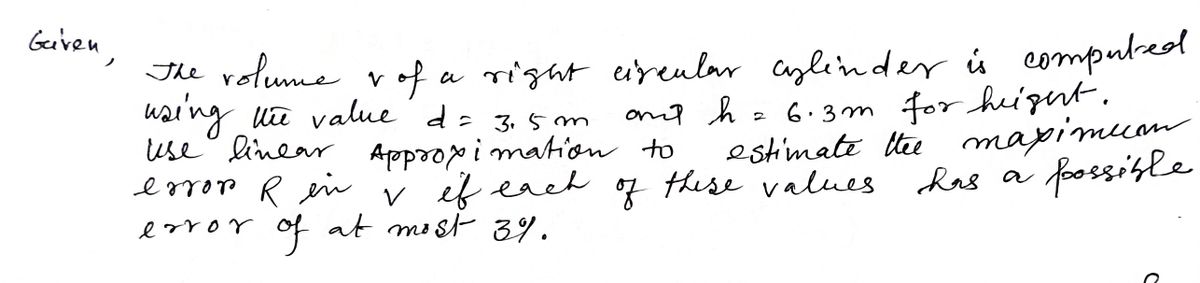 Given,
The volume v of a right circular cylinder is computed
using the value d = 3.5m and h = 6.3m for height.
Use linear Approximation to estimate the maximum
error R in v if each of these values has a possible
error of at most 3%.